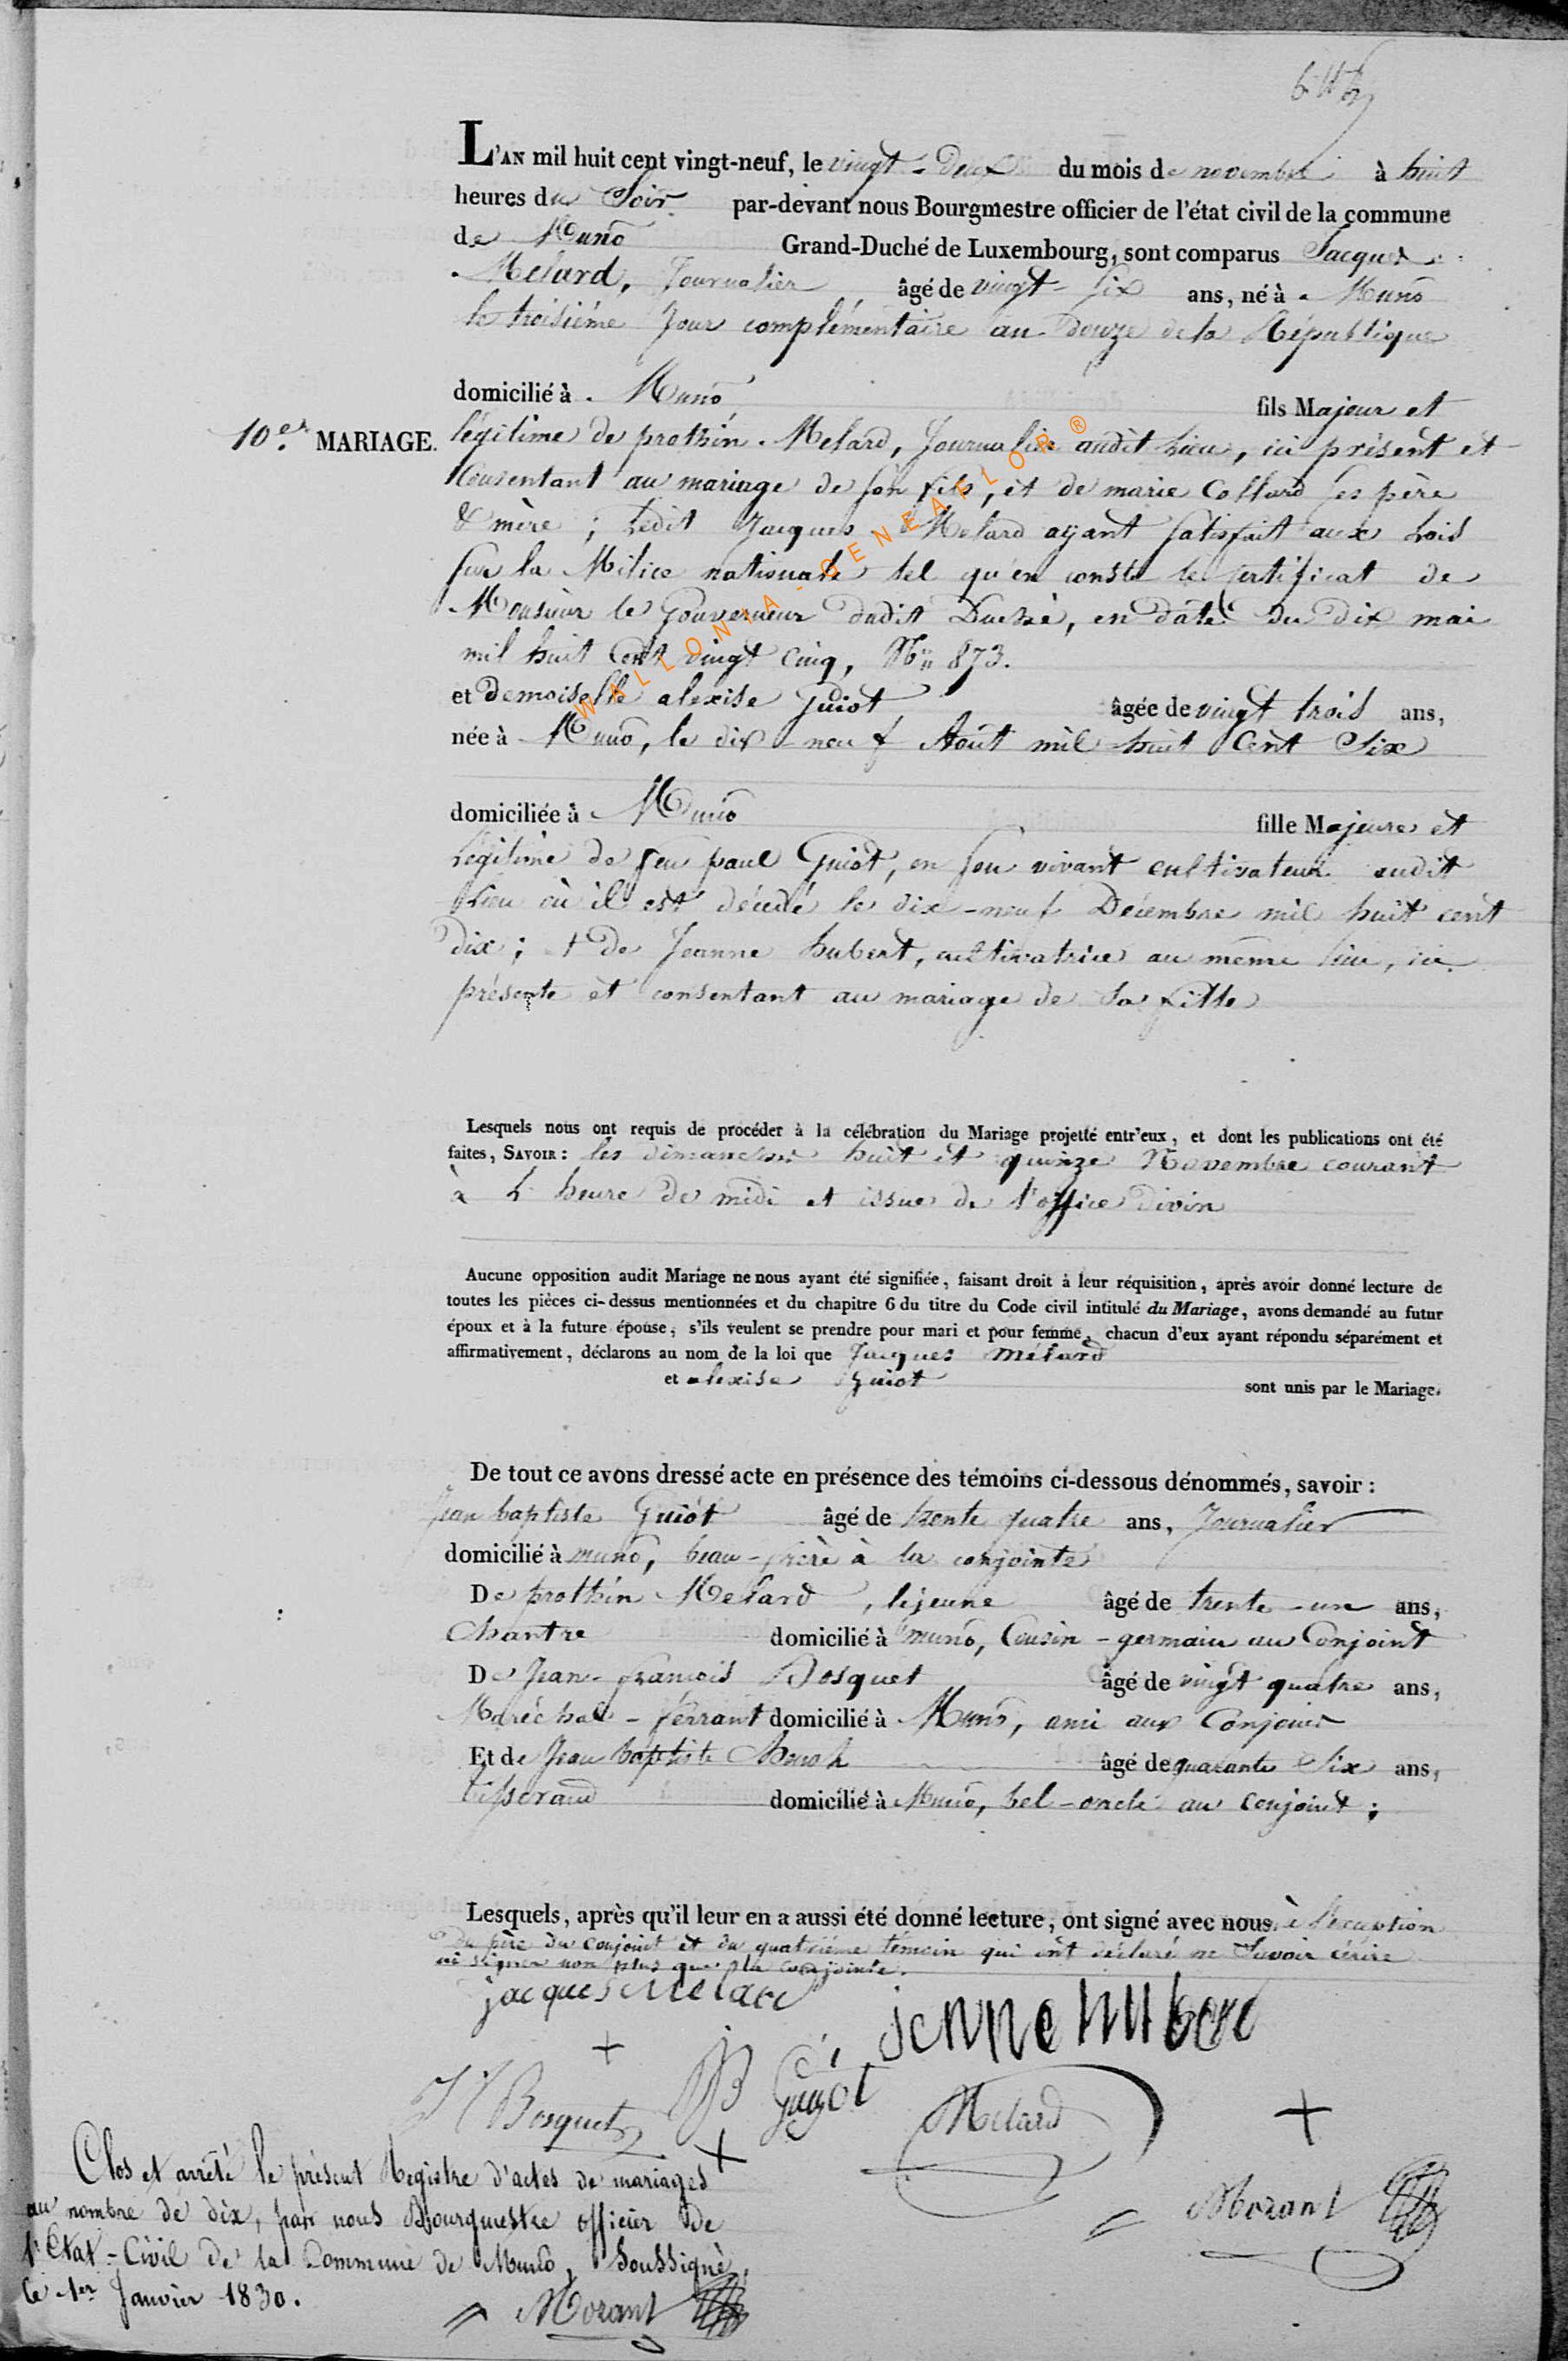 L'AN mil huit cent vingt-neuf, le vingt-deux du mois de novembre à huit
heures du Soir par-devant nous Bourgmestre officier de l'état civil de la commune
de Muno Grand-Duché de Luxembourg, sont comparus Jacques
Melard, Journalier âgé de vingt-six ans, né à Muno
le troisième Jour complémentaire an douze de la République
domicilié à Muno fils Majeur et
10e. MARIAGE.
légitime de prothin Melard, Journalier audit Lieu, ici présent et
Consentant au mariage de son fils, et de marie Collard ses père
& mère ; Ledit Jacques Melard ayant satisfait aux Lois
sur la Milice nationale tel qu'en conste le certificat de
Monsieur le Gouverneur dudit Duché, en date du dix mai
mil huit Cent vingt cinq, No 873.
et Demoiselle alexise Guiot âgée de vingt trois ans,
née à Muno, le dix-neuf Août mil huit Cent Six
domiciliée à Muno fille Majeure et
Légitime de feu paul Guiot, en son vivant cultivateur audit
Lieu où il est décédé le dix-neuf Décembre mil huit cent
dix ; et de Jeanne hubert, cultivatrice au même lieu, ici
présente et consentant au mariage de sa fille
Lesquels nous ont requis de procéder à la célébration du Mariage projetté entr'eux, et dont les publications ont été
faites, SAVOIR : les dimanches huit et quinze Novembre courant
à L'heure de midi et issue de l'office divin
Aucune opposition audit Mariage ne nous ayant été signifiée, faisant droit à leur réquisition, après avoir donné lecture de
toutes les pièces ci-dessus mentionnées et du chapitre 6 du titre du Code civil intitulé du Mariage, avons demandé au futur
époux et à la future épouse, s'ils veulent se prendre pour mari et pour femme, chacun d'eux ayant répondu séparément et
affirmativement, déclarons au nom de la loi que Jacques Mélard
et alexise Guiot sont unis par le Mariage.
De tout ce avons dressé acte en présence des témoins ci-dessous dénommés, savoir :
Jean baptiste Guiot âgé de trente quatre ans, Journalier
domicilié à muno, beau-frère à la conjointe
De prothin Melard, lejeune âgé de trente-un ans,
Chantre domicilié à muno, Cousin-germain au Conjoint
De Jean-françois Bosquet âgé de vingt quatre ans,
Maréchal-ferrant domicilié à Muno, ami aux Conjoints
Et de Jean baptiste âgé de quarante Six ans,
tisserand domicilié à Muno, bel-oncle au conjoint ;
Lesquels, après qu'il leur en a aussi été donné lecture, ont signé avec nous à l'exception
du père du conjoint et du quatrième témoin qui ont déclaré ne Savoir écrire
ni signer non plus que la conjointe.
jacques Melard
jenne hubert
+
JF Bosquet JB Guiot Melard +
+
Morant
Clos et arrêté le présent Registre d'actes de mariages
au nombre de dix, par nous Bourgmestre officier de
l'Etat-Civil de la Commune de Muno, Soussigné,
le 1er Janvier 1830.
Morant
WALLONIA-GENEAFLOR®